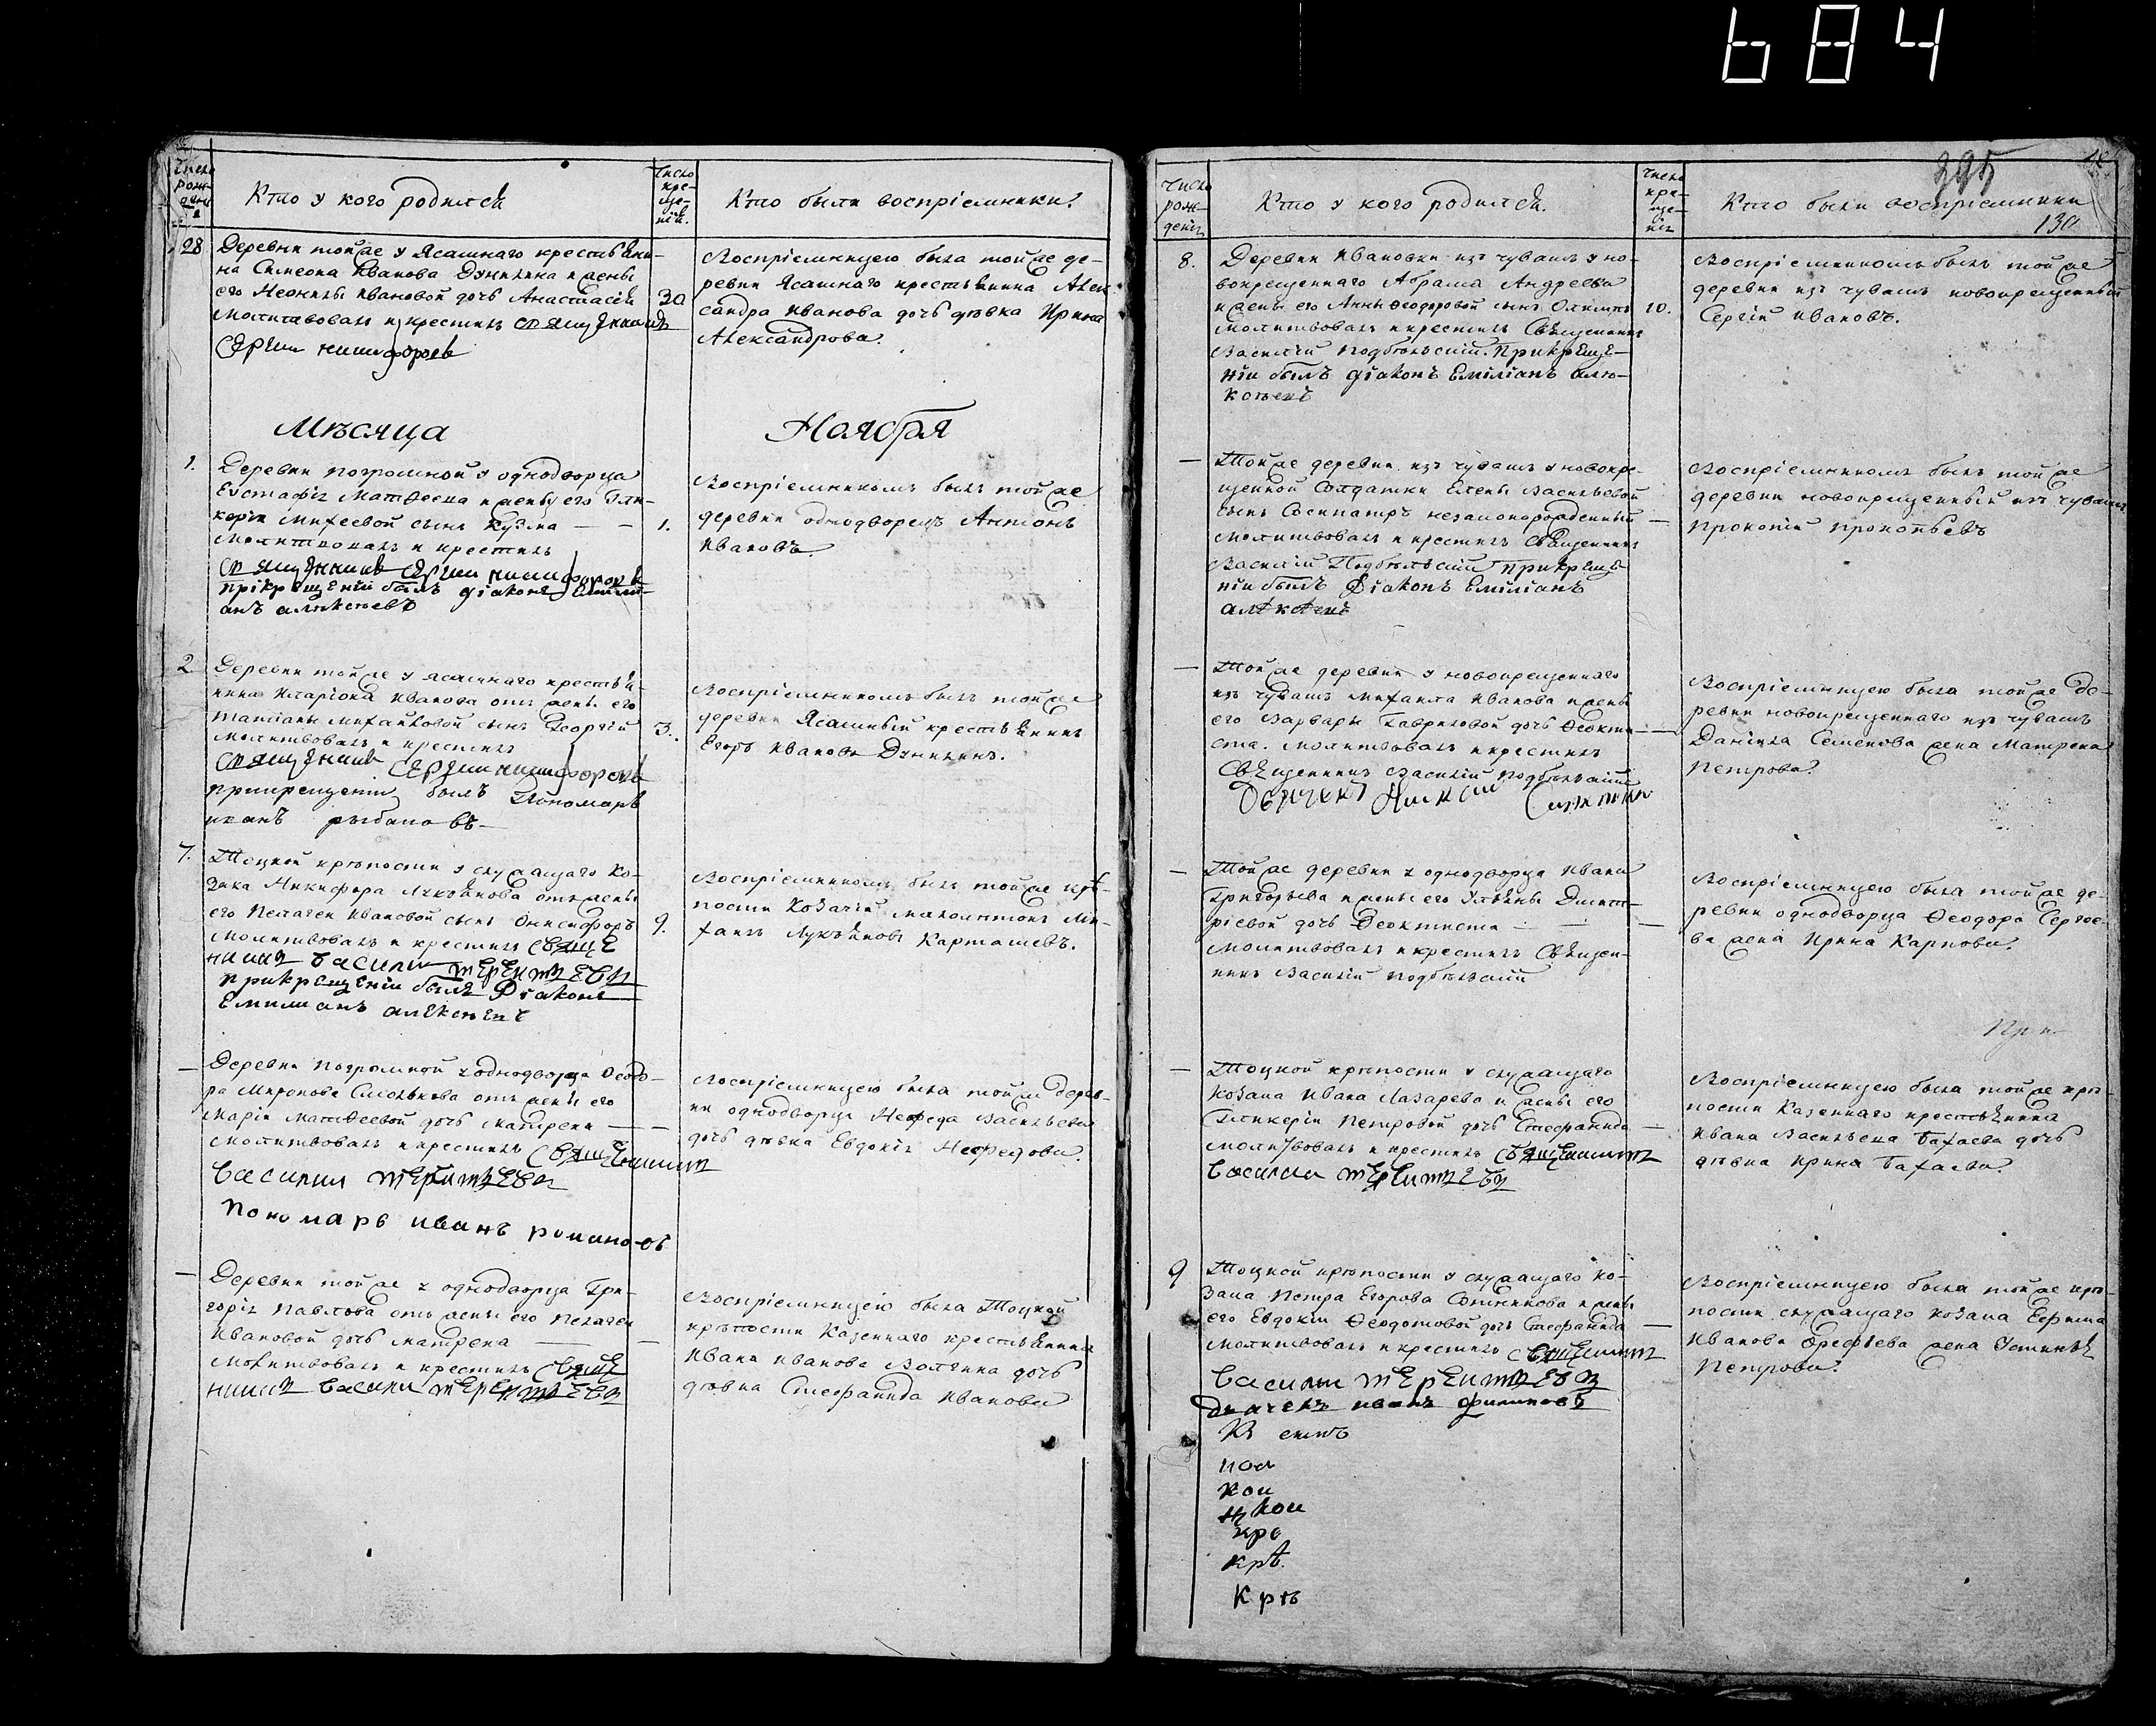 684
Число рож- дени я
Кто у кого родился
Число кре- ще- ній.
Кто были воспріемники.
28
Деревни тойже у Ясашнаго крестьяни-
на Симеона Иванова Дунилина и жены
его Неонилы Ивановой дочь Анастасія
молитвовалъ и крестилъ священникъ
Сергий никифоровъ
30
Воспріемницею была тойже де-
ревни Ясашнаго крестьянина Алек
сандра Иванова дочь дѣвка Ирина
Александрова.
Мѣсяца
Ноября
1.
Деревни погромной у однодворца
Евстафія Матвеева и жены его Гли-
керіи Михеевой сынъ Кузма —
молитвовалъ и крестилъ
священникъ Сергии никифоровъ
прікрещеніи былъ діаконъ Емили-
анъ алѣксѣевъ
1.
Воспріемникомъ былъ тойже
деревни однодворецъ Антонъ
Ивановъ.
2.
Деревни тойже у ясашнаго крестья-
нина Иларіона Иванова отъ жены его
татіаны михайловой сынъ Георгій
молитвовалъ и крестилъ
священникъ Сергии никифоровъ
прикрещеніи былъ Пономарь
иванъ
3.
Воспріемникомъ былъ тойже
деревни Ясашный крестьянинъ
Егоръ Ивановъ Дунилинъ.
7.
Тоцкой крѣпости у служащаго Ко-
зака Никифора Лукьянова отъ жены
его Пелагеи Ивановой сынъ Онисифоръ
молитвовалъ и крестилъ свяще
никъ василии терентьевъ
прикрещеніи былъ Діаконъ
Емилианъ алексѣевъ
9.
Воспріемникомъ былъ тойже крѣ-
пости Козачій малолѣтокъ Ми-
хаилъ Лукьяновъ Карташевъ.
—
Деревни Погромной у однодворца Феодо-
ра Миронова Смолькова отъ жены его
Маріи Матвеевой дочь Матрена —
молитвовалъ и крестилъ священникъ
василии терентьевъ
Пономарь иванъ романовъ
—
Воспріемницею была тойже дерев-
ни однодворца Нефеда Васильева
дочь дѣвка Евдокія Нефедова.
—
Деревни тойже у однодворца Гри-
горія Павлова отъ жены его Пелагеи
Ивановой дочь матрена —
молитвовалъ и крестилъ свяще
никъ василии терентьевъ
—
Воспріемницею была Тоцкой
крѣпости Казеннаго крестьянина
Ивана Иванова Волгина дочь
дѣвка Стефанида Иванова
Число рож- денія
Кто у кого родился.
Число кре- ще- нія
Кто были воспріемники
395
130
8.
Деревни Ивановки изъ чувашъ у но-
вокрещеннаго Абрама Андреева
и жены его Анны Феодоровой сынъ Олимпъ
молитвовалъ и крестилъ Священникъ
Василій Подбѣльскій. Прикреще-
ніи былъ діаконъ Емиліанъ алѣ-
ксѣевъ
10.
Воспріемникомъ былъ тойже
деревни изъ чувашъ новокрещенный
Сергій Ивановъ.
—
Тойже деревни изъ чувашъ у новокре-
щенной солдатки Елены Васильевой
сынъ Сосипатръ незаконорожденный
молитвовалъ и крестилъ Священникъ
Василій Подбѣльскій прикреще-
ніи былъ Діаконъ Емиліанъ
алѣксѣевъ
—
Воспріемникомъ былъ тойже
деревни новокрещенный изъ чувашъ
Прокопій Прокопьевъ
—
Тойже деревни у новокрещеннаго
изъ чувашъ Михаила Иванова и жены
его Варвары Гавриловой дочь Феокти-
ста. молитвовалъ и крестилъ
Священникъ Василій Подбѣльскій
—
Воспріемницею была тойже де-
ревни новокрещеннаго изъ чувашъ
Даніила Семенова жена Матрена
Петрова.
—
Тойже деревни у однодворца Ивана
Григорьева и жены его Ульяны Дмит-
ріевой дочь Феоктиста —
молитвовалъ и крестилъ Священ-
никъ Василій Подбѣльскій
—
Воспріемницею была тойже де-
ревни однодворца Феодора Сергее-
ва жена Ирина Карпова.
При
—
Тоцкой крѣпости у служащаго
Козака Ивана Лазарева и жены его
Гликеріи Петровой дочь Стефанида
молитвовалъ и крестилъ священникъ
василии терентьевъ
—
Воспріемницею была тойже крѣ-
пости Казеннаго крестьянина
Ивана Васильева Бахаева дочь
дѣвка Ирина Бахаева.
9
Тоцкой крѣпости у служащаго Ко-
зака Петра Егорова Сотникова и жены
его Евдокіи Феодотовой дочь Стефанида
молитвовалъ и крестилъ священникъ
василии терентьевъ
дьячекъ иванъ филиповъ
—
Воспріемницею была тойже крѣ-
пости служащаго козака Ефима
Иванова Орефьева жена Устинья
Петрова.
кои
кре
крѣ.
крѣ